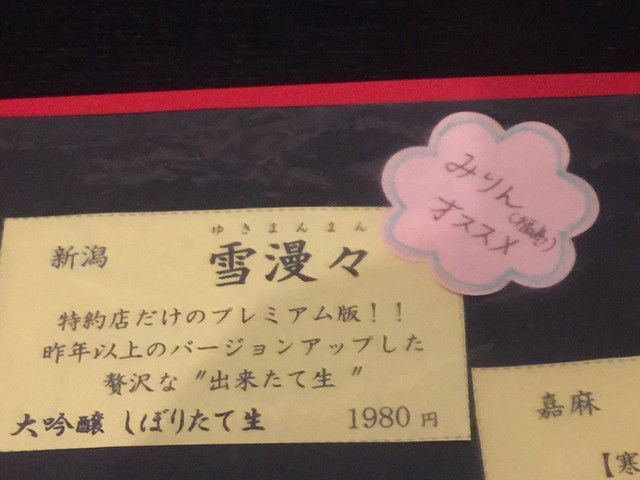 みりん(福島)
オススメ
ゆきまんまん
新潟 雪漫々
特約店だけのプレミアム版！！
昨年以上のバージョンアップした
贅沢な〝出来たて生〞
大吟醸 しぼりたて生 1980円
嘉麻
【寒